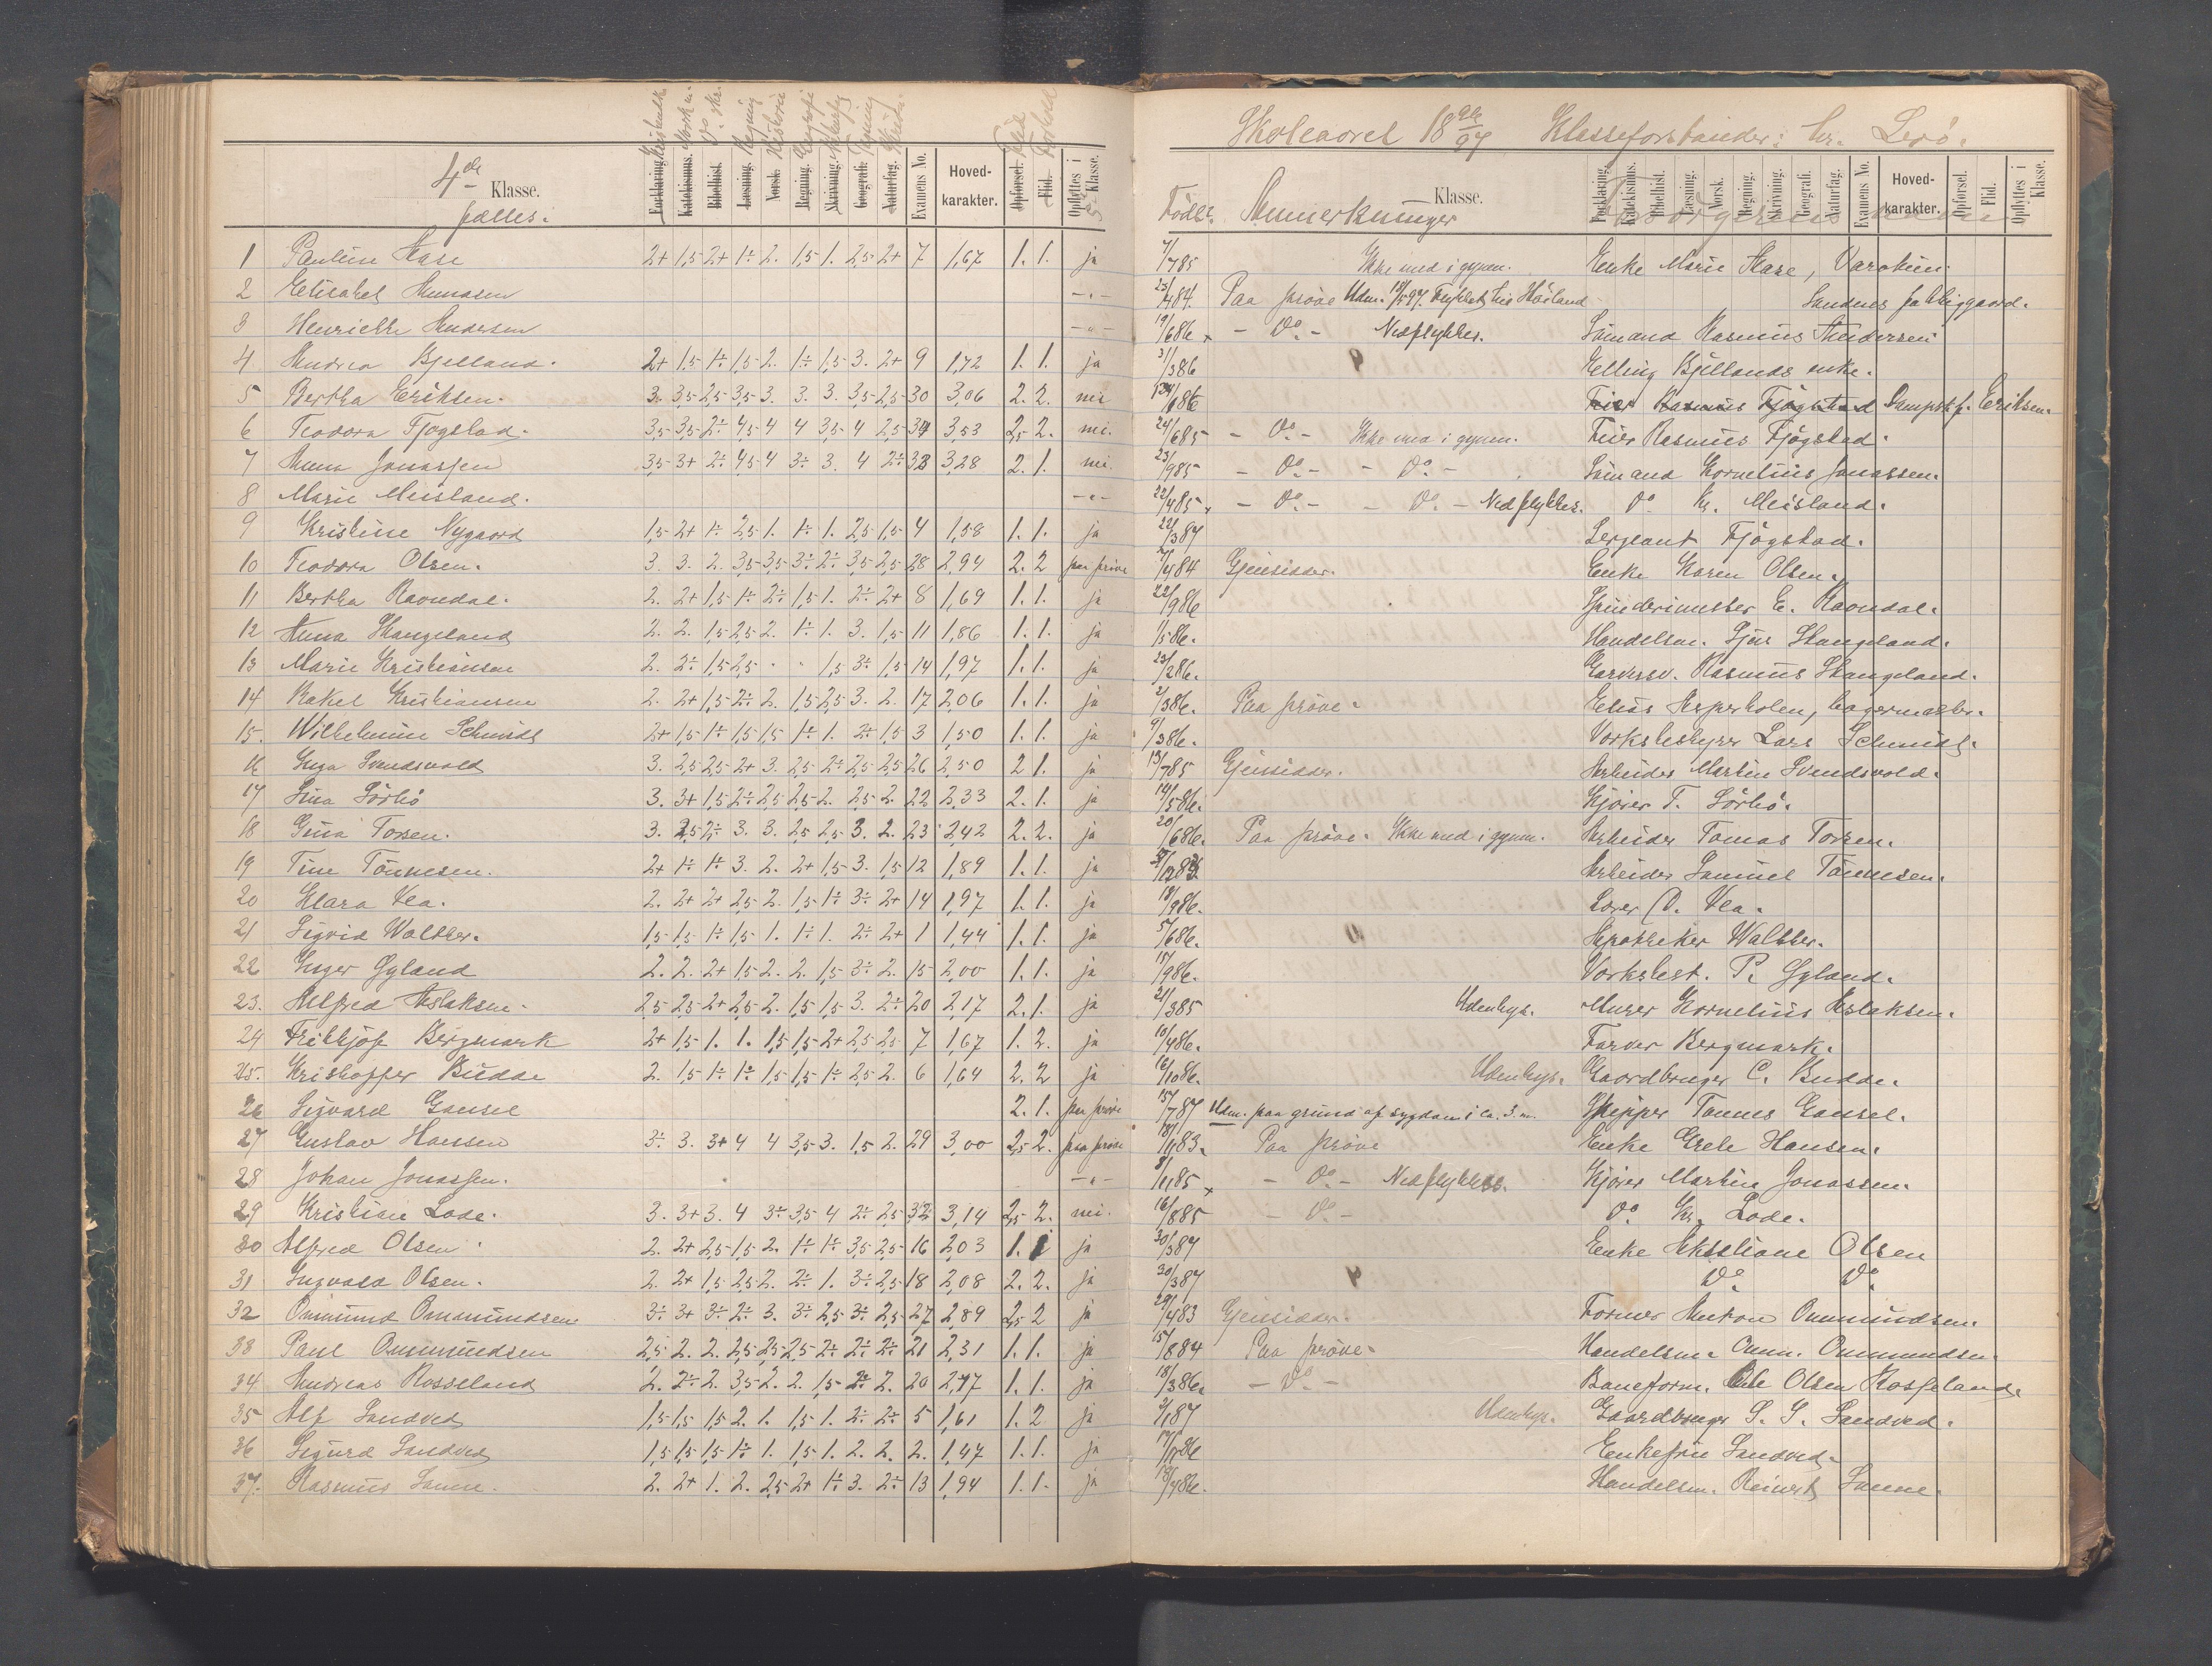 Skoleaaret 18 96/97 Klasseforstander: hr. Lerö.
4de Klasse.
fælles.
Forklaring. Katekismus. Bibelhist. Læsning. Norsk. Regning. Skrivning. Geografi. Naturfag. Examens No. Hoved-karakter. Opførsel. Flid. Opflyttes i 5 Klasse.
Kristendk. Norsk m. Do. skr. Regning Historie Geografi Naturfag Flid Forhold
Født: Anmerkninger Klasse.
Forklaring. Katekismus. Bibelhist. Læsning. Norsk. Regning. Skrivning. Geografi. Naturfag. Examens No. Hoved-karakter. Opførsel. Flid. Opflyttes i Klasse.
1 Pauline Aase 2+ 1,5 2+ 1÷ 2. 1,5 1. 2,5 2+ 7 1,67 1. 1. ja 7/7 85 Ikke med i gymn. Enke Marie Aase,
2 Elisabet -"- 23/4 84. Paa prøve Udm. Sandnes fattiggaard.
3 Henriette Andersen -"- 19/6 86 × - Do - Nedflyttet. Sömand Rasmus Andersen
4 Andrea Bjelland. 2+ 1,5 1÷ 1,5 2. 1÷ 1,5 3. 2+ 9 1,72 1. 1. ja 31/3 86 Elling Bjellands enke.
5 Bertha Eriksen. 3. 3,5 2,5 3,5 3. 3. 3. 3,5 2,5 30 3,06 2. 2. nei Feier Rasmus Fjögstad Dampsk.f. Eriksen.
6 Teodora Fjogstad. 3,5 3,5 2÷ 4,5 4 4 3,5 4 2,5 34 3,53 2,5 2. nei. 24/6 85 - Do - Ikke med i gymn. Feier Rasmus Fjögstad.
7 Anna Jonassen 3,5 3+ 2÷ 4,5 4 3÷ 3. 4 2÷ 33 3,28 2. 1. nei. 23/9 85 - Do - - Do - Sömand Kornelius Jonassen.
8 Marie Meisland. -"- 22/4 85 × - Do - - Do - Nedflyttet. Do Kr. Meisland.
9 Kristine Nygaard 1,5 2+ 1÷ 2,5 1. 1÷ 1. 2,5 1,5 4 1,58 1. 1. ja 22/3 87 Sergeant Fjögstad.
10 Teodora Olsen. 3. 3. 2. 3,5 3,5 3÷ 2÷ 3,5 2,5 28 2,94 2. 2 paa prøve 7/4 84 Gjensidder. Enke Karen Olsen.
11 Bertha Ravndal. 2. 2+ 1,5 1÷ 2÷ 1,5 1. 2÷ 2+ 8 1,69 1. 1. ja 22/9 86 Spinderimester E. Ravndal.
12 Anna Skangeland 2. 2. 1,5 2,5 2. 1÷ 1. 3. 1,5 11 1,86 1. 1. ja 1/5 86. Handelsm. Sjur Skangeland.
13 Marie Kristiansen 2. 2÷ 1,5 2,5 " " 1,5 3÷ 1,5 14 1,97 1. 1. ja 23/2 86. Garversv. Rasmus Skangeland.
14 Rakel Kristiansen 2. 2+ 1,5 2÷ 2. 1,5 2,5 3. 2. 17 2,06 1. 1. ja 2/3 86. Paa prøve. Elias Asperholen, bagermester.
15. Wilhelmine Schmidt 2+ 1,5 1÷ 1,5 1,5 1÷ 1. 2÷ 1,5 3 1,50 1. 1. ja 9/3 86. Værkstedstyrer Lars Schmidt.
16 Inga Svendsvold 3. 2,5 2,5 2+ 3. 2,5 2÷ 2,5 2,5 26 2,50 2 1. ja 13/7 85 Gjensidder. Arbeider Martin Svendsvold.
17 Lina Sörbö 3. 3+ 1,5 2÷ 2,5 2,5 2. 2,5 2. 22 2,33 2. 1. ja 14/5 86. Kjører T. Sörbö.
18 Gina Torsen. 3. 2,5 2÷ 3. 3. 2,5 2,5 3. 2. 23 2,42 2. 2. ja 20/6 86. Paa prøve. Ikke med i gymn. Arbeider Tomas Torsen.
19 Tine Tönnesen. 2+ 1÷ 1÷ 3. 2. 2+ 1,5 3. 1,5 12 1,89 1. 1. ja Arbeider Samuel Tönnesen.
20 Klara Vea. 2. 2+ 2+ 2,5 2. 1,5 1÷ 3÷ 2+ 14 1,97 1. 1. ja 18/9 86. Lærer O. Vea.
21 Sigrid Walther. 1,5 1,5 1÷ 1,5 1. 1÷ 1. 2÷ 2+ 1 1,44 1. 1. ja 5/6 86. Apotheker Walther.
22 Inger Gyland 2. 2. 2+ 1,5 2. 2. 1,5 3÷ 2. 15 2,00 1. 1. ja 15/9 86. Værkstedst. P. Gyland.
23. Alfred Aslaksen. 2,5 2,5 2+ 2,5 2. 1,5 1,5 3. 2÷ 20 2,17 2. 1. ja 21/3 85 Udenbys. Murer Kornelius Aslaksen.
24 Frithjof Bergmark 2+ 1,5 1. 1. 1,5 1,5 2+ 2,5 2,5 7 1,67 1. 2. ja 10/4 86. Farver Bergmark.
25. Kristoffer Budde 2. 1,5 1÷ 1÷ 1,5 1,5 1÷ 2,5 2. 6 1,64 2. 2 ja 16/10 86. Udenbys. Gaardbruger C. Budde.
26 Sigvard Gausel 2. 1. paa prøve 15/7 87 Udm. paa grund af sygdom i ca. 3 m. Skipper Tønnes Gausel.
27 Gustav Hansen 3÷ 3. 3+ 4 4 3,5 3. 1,5 2. 29 3,00 2,5 2. paa prøve 18/11 83. Paa prøve Enke Grete Hansen.
28 Johan Jonassen. -"- 8/11 85 × - Do - Nedflyttes. Kjører Martin Jonassen.
29 Kristian Lode. 3. 3+ 3. 4 3÷ 3,5 4 2÷ 2,5 32 3,14 2,5 2. nei. 16/8 85 - Do - Do Kr. Lode.
30 Alfred Olsen. 2. 2+ 2,5 1,5 2. 1÷ 1÷ 3,5 2,5 16 2,03 1. 1 ja 30/3 87 Enke Olsen
31 Ingvald Olsen. 2. 2+ 1,5 2,5 2. 2÷ 1. 3÷ 2,5 18 2,08 2. 2. ja 30/3 87 Do Do
32 Ommund Ommundsen 3÷ 3+ 3÷ 2÷ 3. 3÷ 2,5 3÷ 2,5 27 2,89 2,5 2 ja 29/4 83 Gjensidder. Former Anton Ommundsen.
33 Paul Ommundsen 2,5 2. 2. 2,5 2,5 2,5 2÷ 2÷ 2÷ 21 2,31 1. 1. ja 15/8 84 Paa prøve. Handelsm. Omm. Ommundsen
34 Andreas Rosseland 2. 2÷ 2. 3,5 2. 2. 1,5 2÷ 2. 20 2,17 1. 1. ja 18/3 86. - Do - Baneform. Ole Olsen Rosseland.
35 Alf Sandved 1,5 1,5 1,5 2. 1. 1,5 1. 2÷ 2÷ 5 1,61 1. 2 ja 2/1 87 Udenbys. Gaardbruger S. S. Sandved.
36 Sigurd Sandved 1,5 1,5 1,5 1÷ 1. 1,5 1. 2. 2. 2. 1,47 1. 1. ja Enkefru Sandved.
37. Rasmus Sanne. 2. 2+ 1. 2. 2,5 2+ 1÷ 3. 2÷ 13 1,94 1. 1. ja 18/4 86. Handelsm. Reinert Sanne.